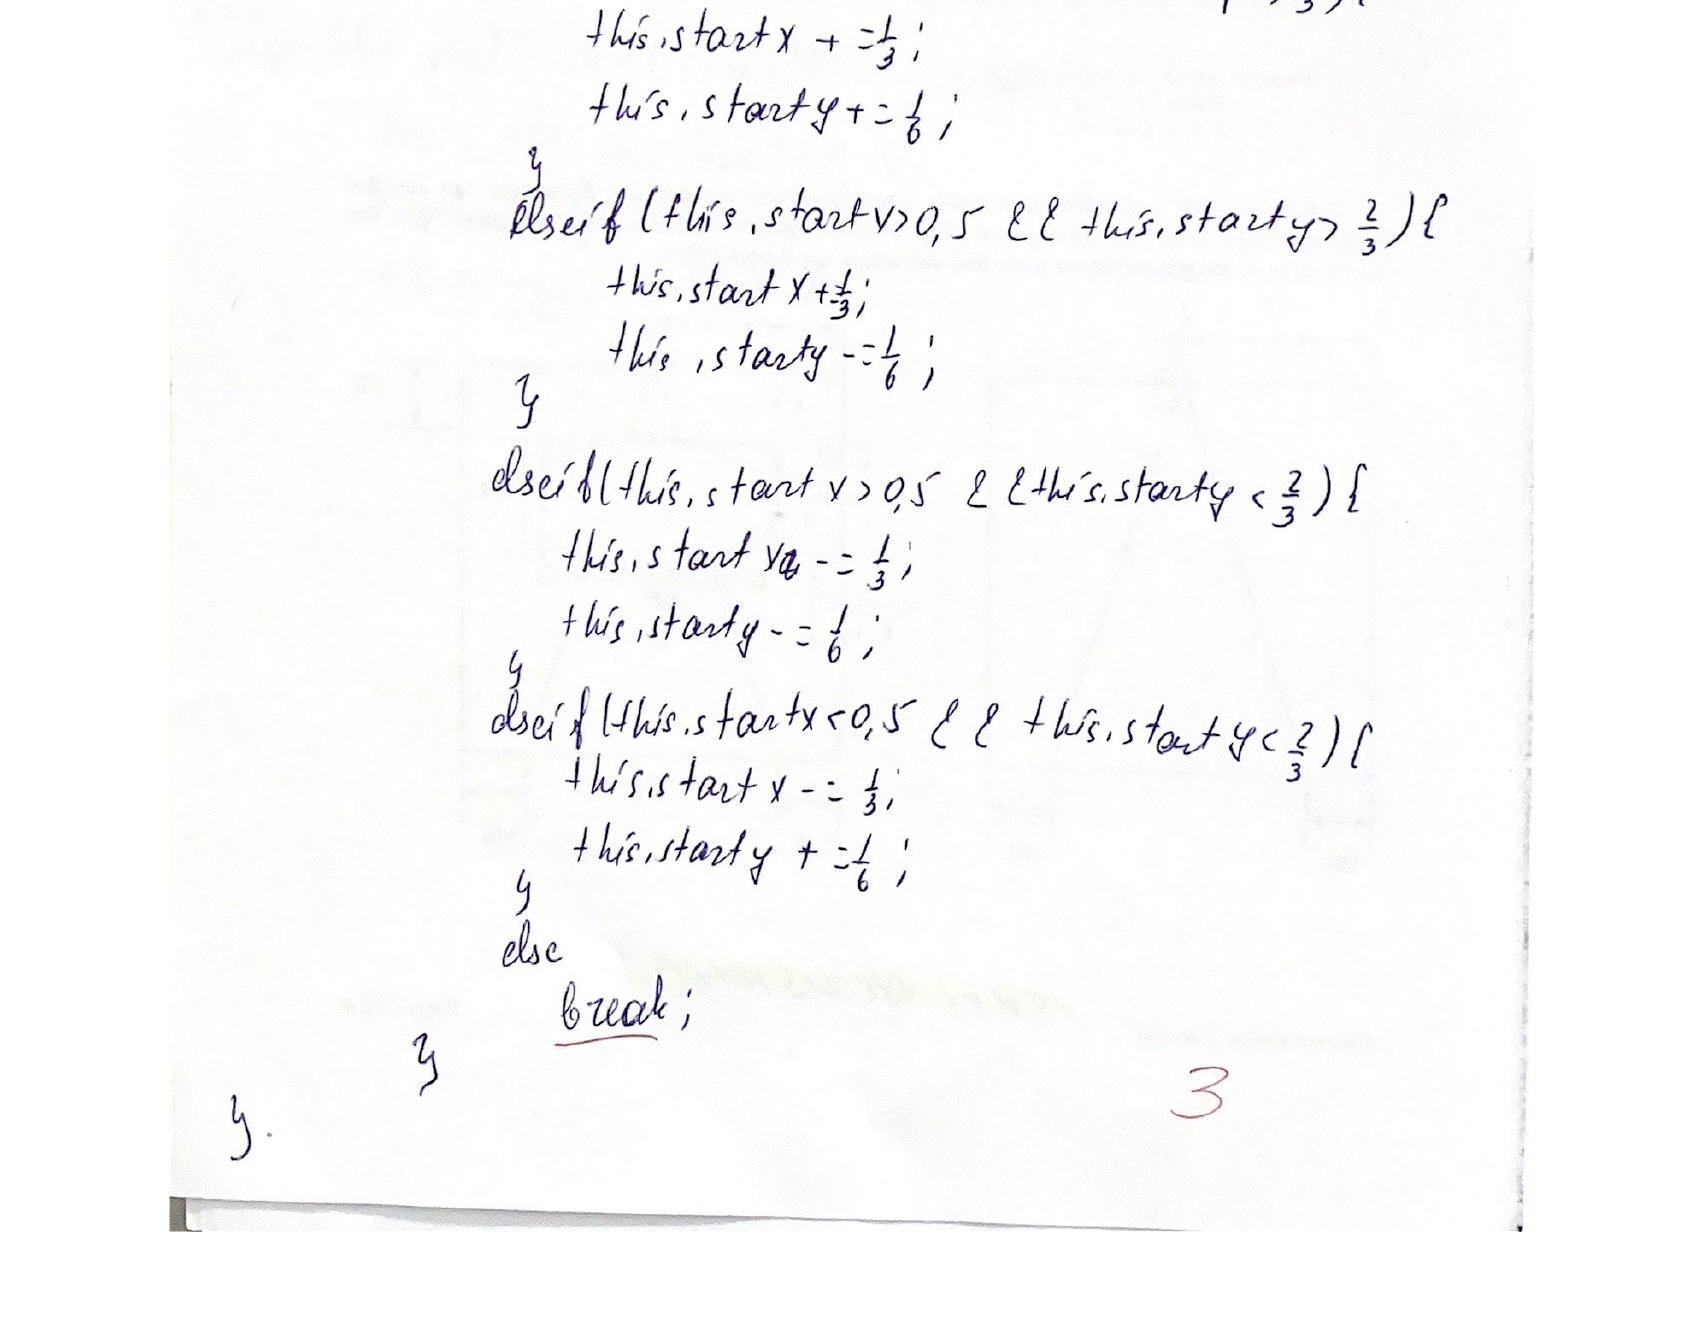 this.startx += 1/3;
this.starty += 1/6;
}
elseif (this.startx>0,5 && this.starty> 2/3) {
this.startx += 1/3;
this.starty -= 1/6;
}
elseif (this.startx>0,5 && this.starty < 2/3) {
this.startx -= 1/3;
this.starty -= 1/6;
}
elseif (this.startx<0,5 && this.starty < 2/3) {
this.startx -= 1/3;
this.starty += 1/6;
}
else
break;
}
3
}.